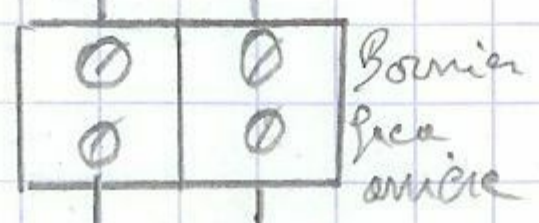 Bornier
feu
arrière